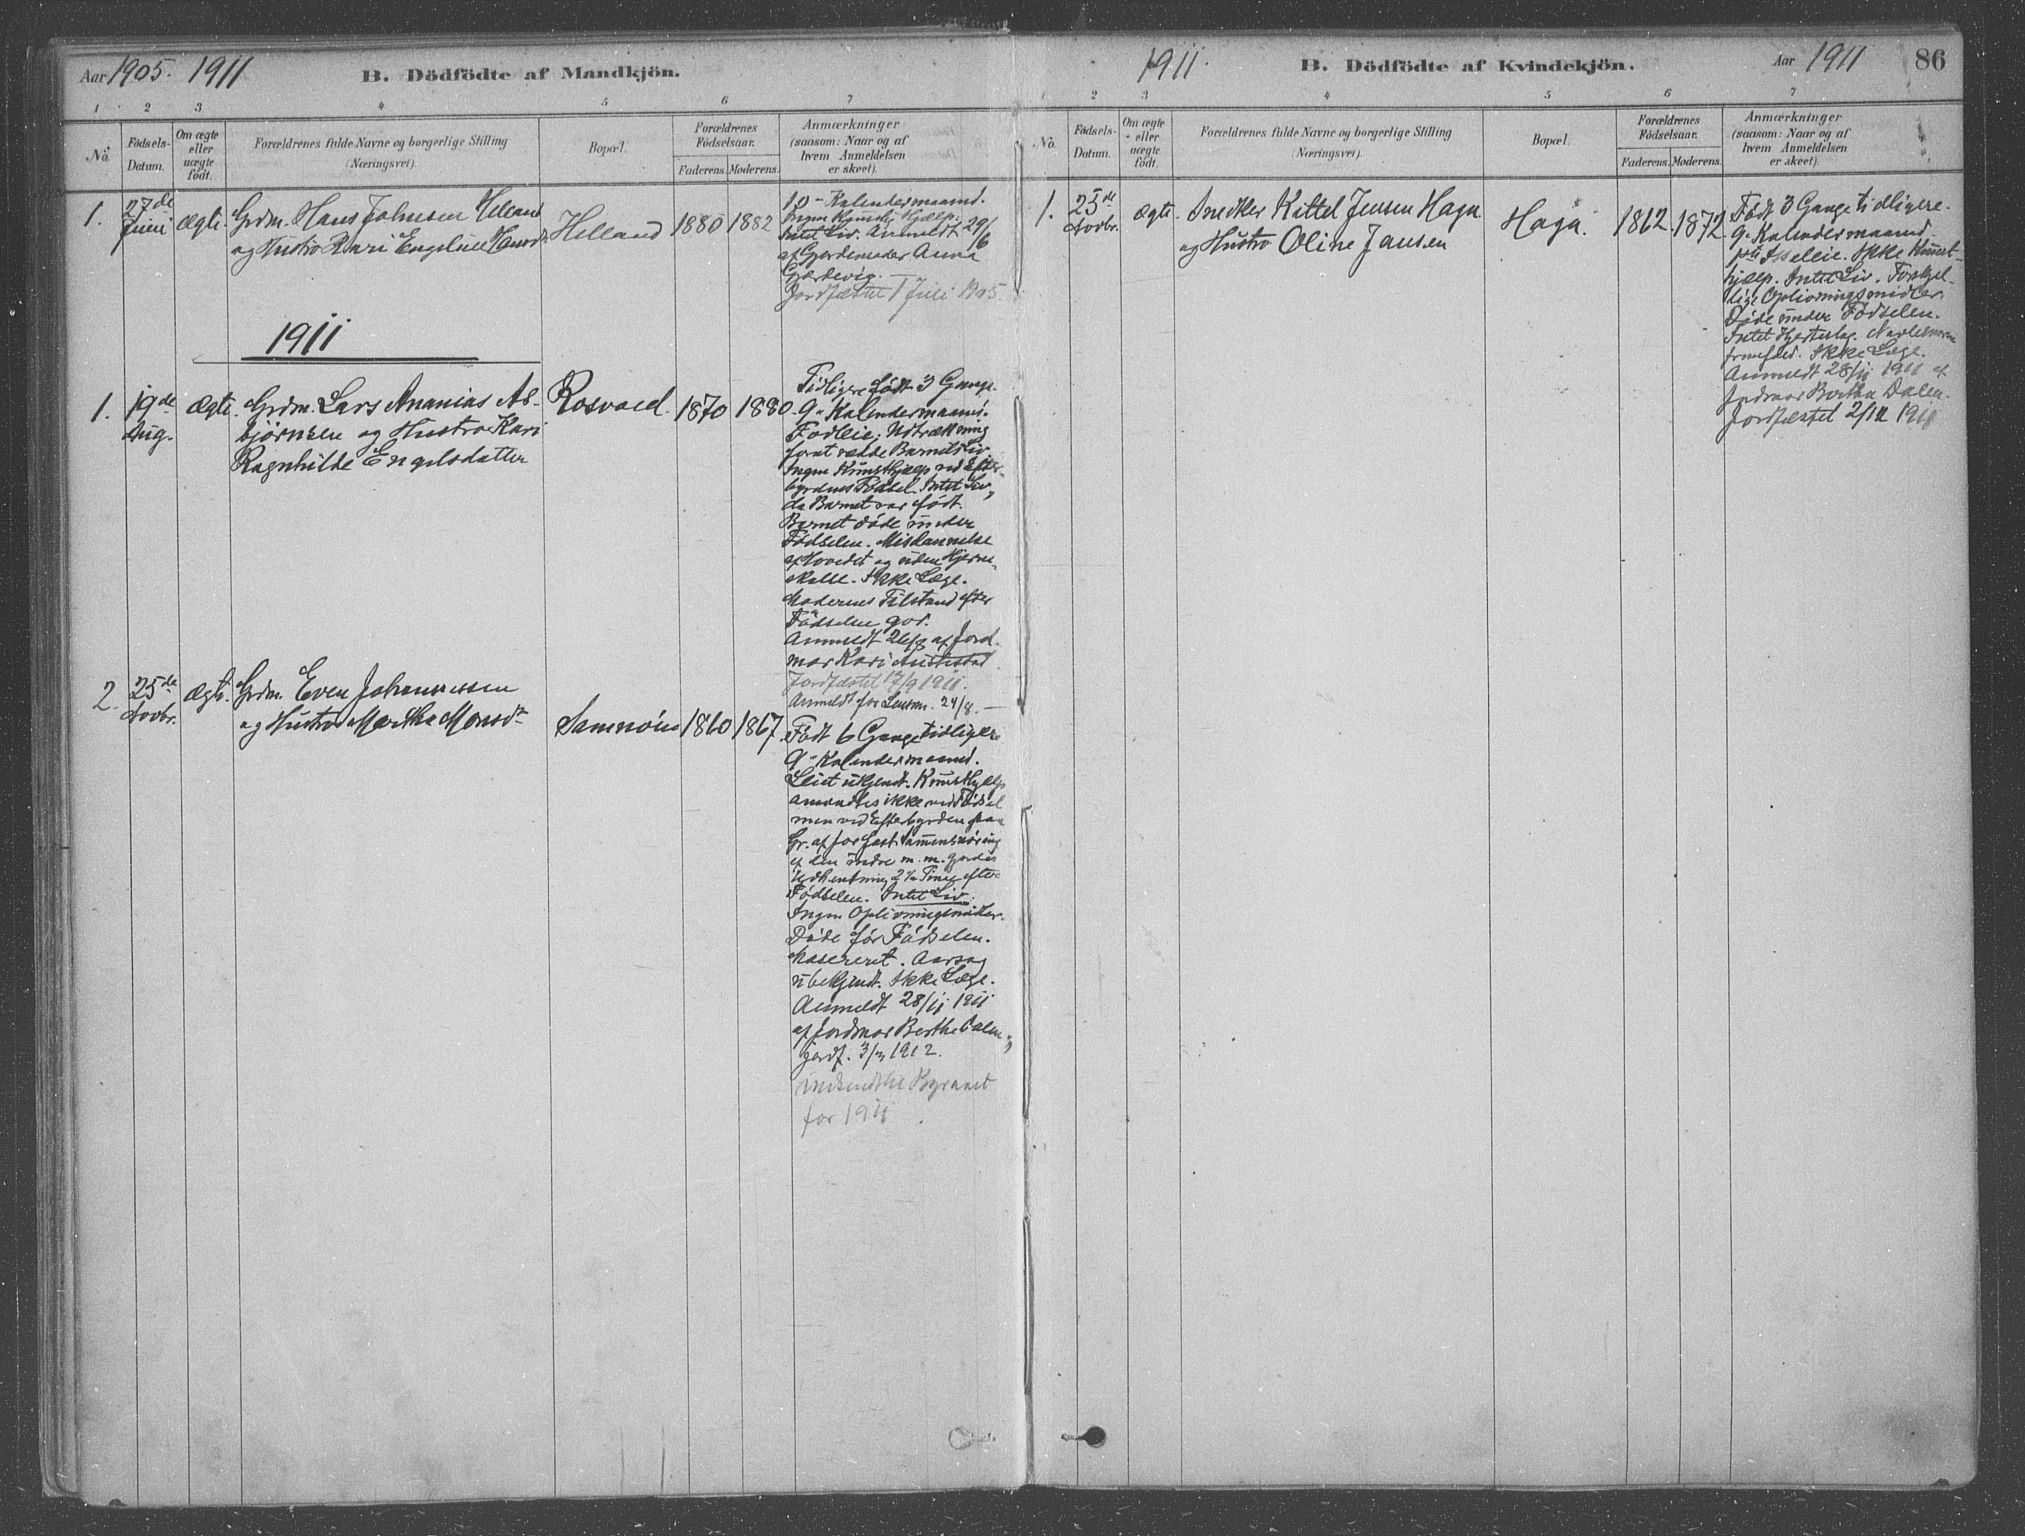 Aar 1905. 1911
B. Dödfödte af Mandkjön.
1 2 3 4 5 6 7
No.
Födsels-
Datum.
Om ægte
eller
uægte
født.
Forældrenes fulde Navne og borgerlige Stilling
(Næringsvei).
Bopæl.
Forældrenes
Födselsaar.
Faderens. Moderens.
Anmærkninger
(saasom: Naar og af
hvem Anmeldelsen
er skeet).
1. 27de Juni ægte. Grdm. Hans Johnsen Helland
og Hustro Kari Engeline Hansd.
Helland 1880 1882
10 Kalendermaaned.
Ingen Kunstig Hjælp.
Intet Liv. Anmeldt 29/6
af Gjordemoder Anna
Gjærdevig. —
Jordfæstet 1 Juli 1905.
1911
1. 19de Aug. Ægte. Grdm. Lars Ananias As-
bjørnsen og Hustro Kari
Ragnhilde Engelsdatter
Rosvold. 1870 1880
Tidligere født 3 Gange.
9 Kalendermaaned.
Fodleie; Udtrækning
forat redde Barnets Liv
Ingen Kunsthjælp ved Efter-
byrdens Fødsel. Intet Liv,
da Barnet var født.
Barnet døde under
Fødselen. Misdannelse
af Hovedet og uden Hjerne-
skalle. Ikke Læge.
Moderens Tilstand efter
Fødselen god.
Anmeldt 26/8 af Jord-
mor Kari
Jordfæstet 17/9 1911.
Anmeldt for Lensm. 24/8. —
2. 25de Novbr. ægte. Grdm. Even Johannessen
og Hustro Martha Monsdt.
Samnøin 1860 1867
Født 6 Gange tidligere
9 Kalendermaaned.
Leiet ukjendt. Kunsthjælp
anvendtes ikke ved Fødsel
men ved Efterbyrden paa
Gr. af for fast Sammensnøring
af den indre m. m. gjordes
Udhentning 2 1/2 Time efter
Fødselen. Intet Liv.
Ingen Oplivningsmidler.
Døde før Fødselen.
Masereret. Aarsag
ubekjendt. Ikke Læge.
Anmeldt 28/11 1911
af Jordmor Berthe Dalen;
jordf. 1912.
indsendt til Byraaet
for 1911
1911.
B. Dödfödte af Kvindekjön.
Aar 1911
86
1 2 3 4 5 6 7
No.
Födsels-
Datum.
Om ægte
eller
uægte
födt.
Forældrenes fulde Navne og borgerlige Stilling
(Næringsvei).
Bopæl.
Forældrenes
Födselsaar.
Faderens. Moderens.
Anmærkninger
(saasom: Naar og af
hvem Anmeldelsen
er skeet).
1. 25de Novbr. ægte. Snedker Kittel Jensen Haga
og Hustro Oline Jansen
Haga. 1862. 1872
Født 3 Gange tidligere.
9 Kalendermaaned.
Isseleie. Ikke Kunst-
hjælp. Intet Liv. Forgjæ-
lige Oplivningsmidler.
Døde under Fødselen.
Intet Hjerteslag. Navlesnoren
fremfaldt. Ikke Læge.
Anmeldt 28/11 1911 af
Jordmor Bertha Dalen.
Jordfæstet 2/12 1911